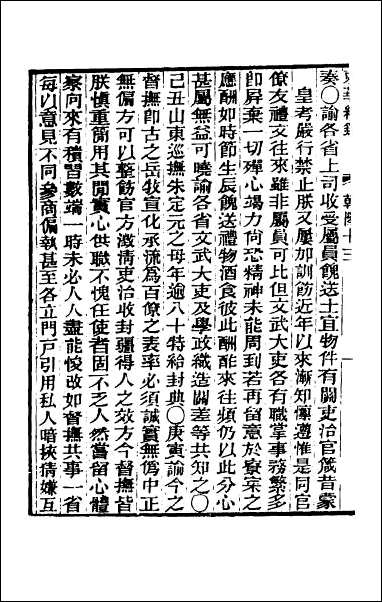 奏〇諭各省上司收受屬員餽送土宜物件有關吏治官箴昔蒙
皇考嚴行禁止朕又屢加訓飭近年以來漸知懔遵惟是同官
僚友禮文往來雖非屬員可比但文武大吏各有職掌事務繁多
即屏棄一切殫心竭力尚恐精神未能周到若再留意於寮寀之
應酬如時節生辰餽送禮物酒食彼此酬酢來往頻仍以此分心
甚屬無益可曉諭各省文武大吏及學政織造關差等共知之〇
己丑山東巡撫朱定元之母年逾八十特給封典〇庚寅諭今之
督撫即古之岳牧宣化承流為百僚之表率必須誠實無偽中正
無偏方可以整飭官方澂清吏治收封疆得人之效方今督撫皆
朕慎重簡用其閒實心供職不愧任使者固不乏人然嘗留心體
察向來有積習數端一時未必人人盡能悛改如督撫共事一省
每以意見不同參商偏執甚至各立門戶引用私人暗挾猜嫌互